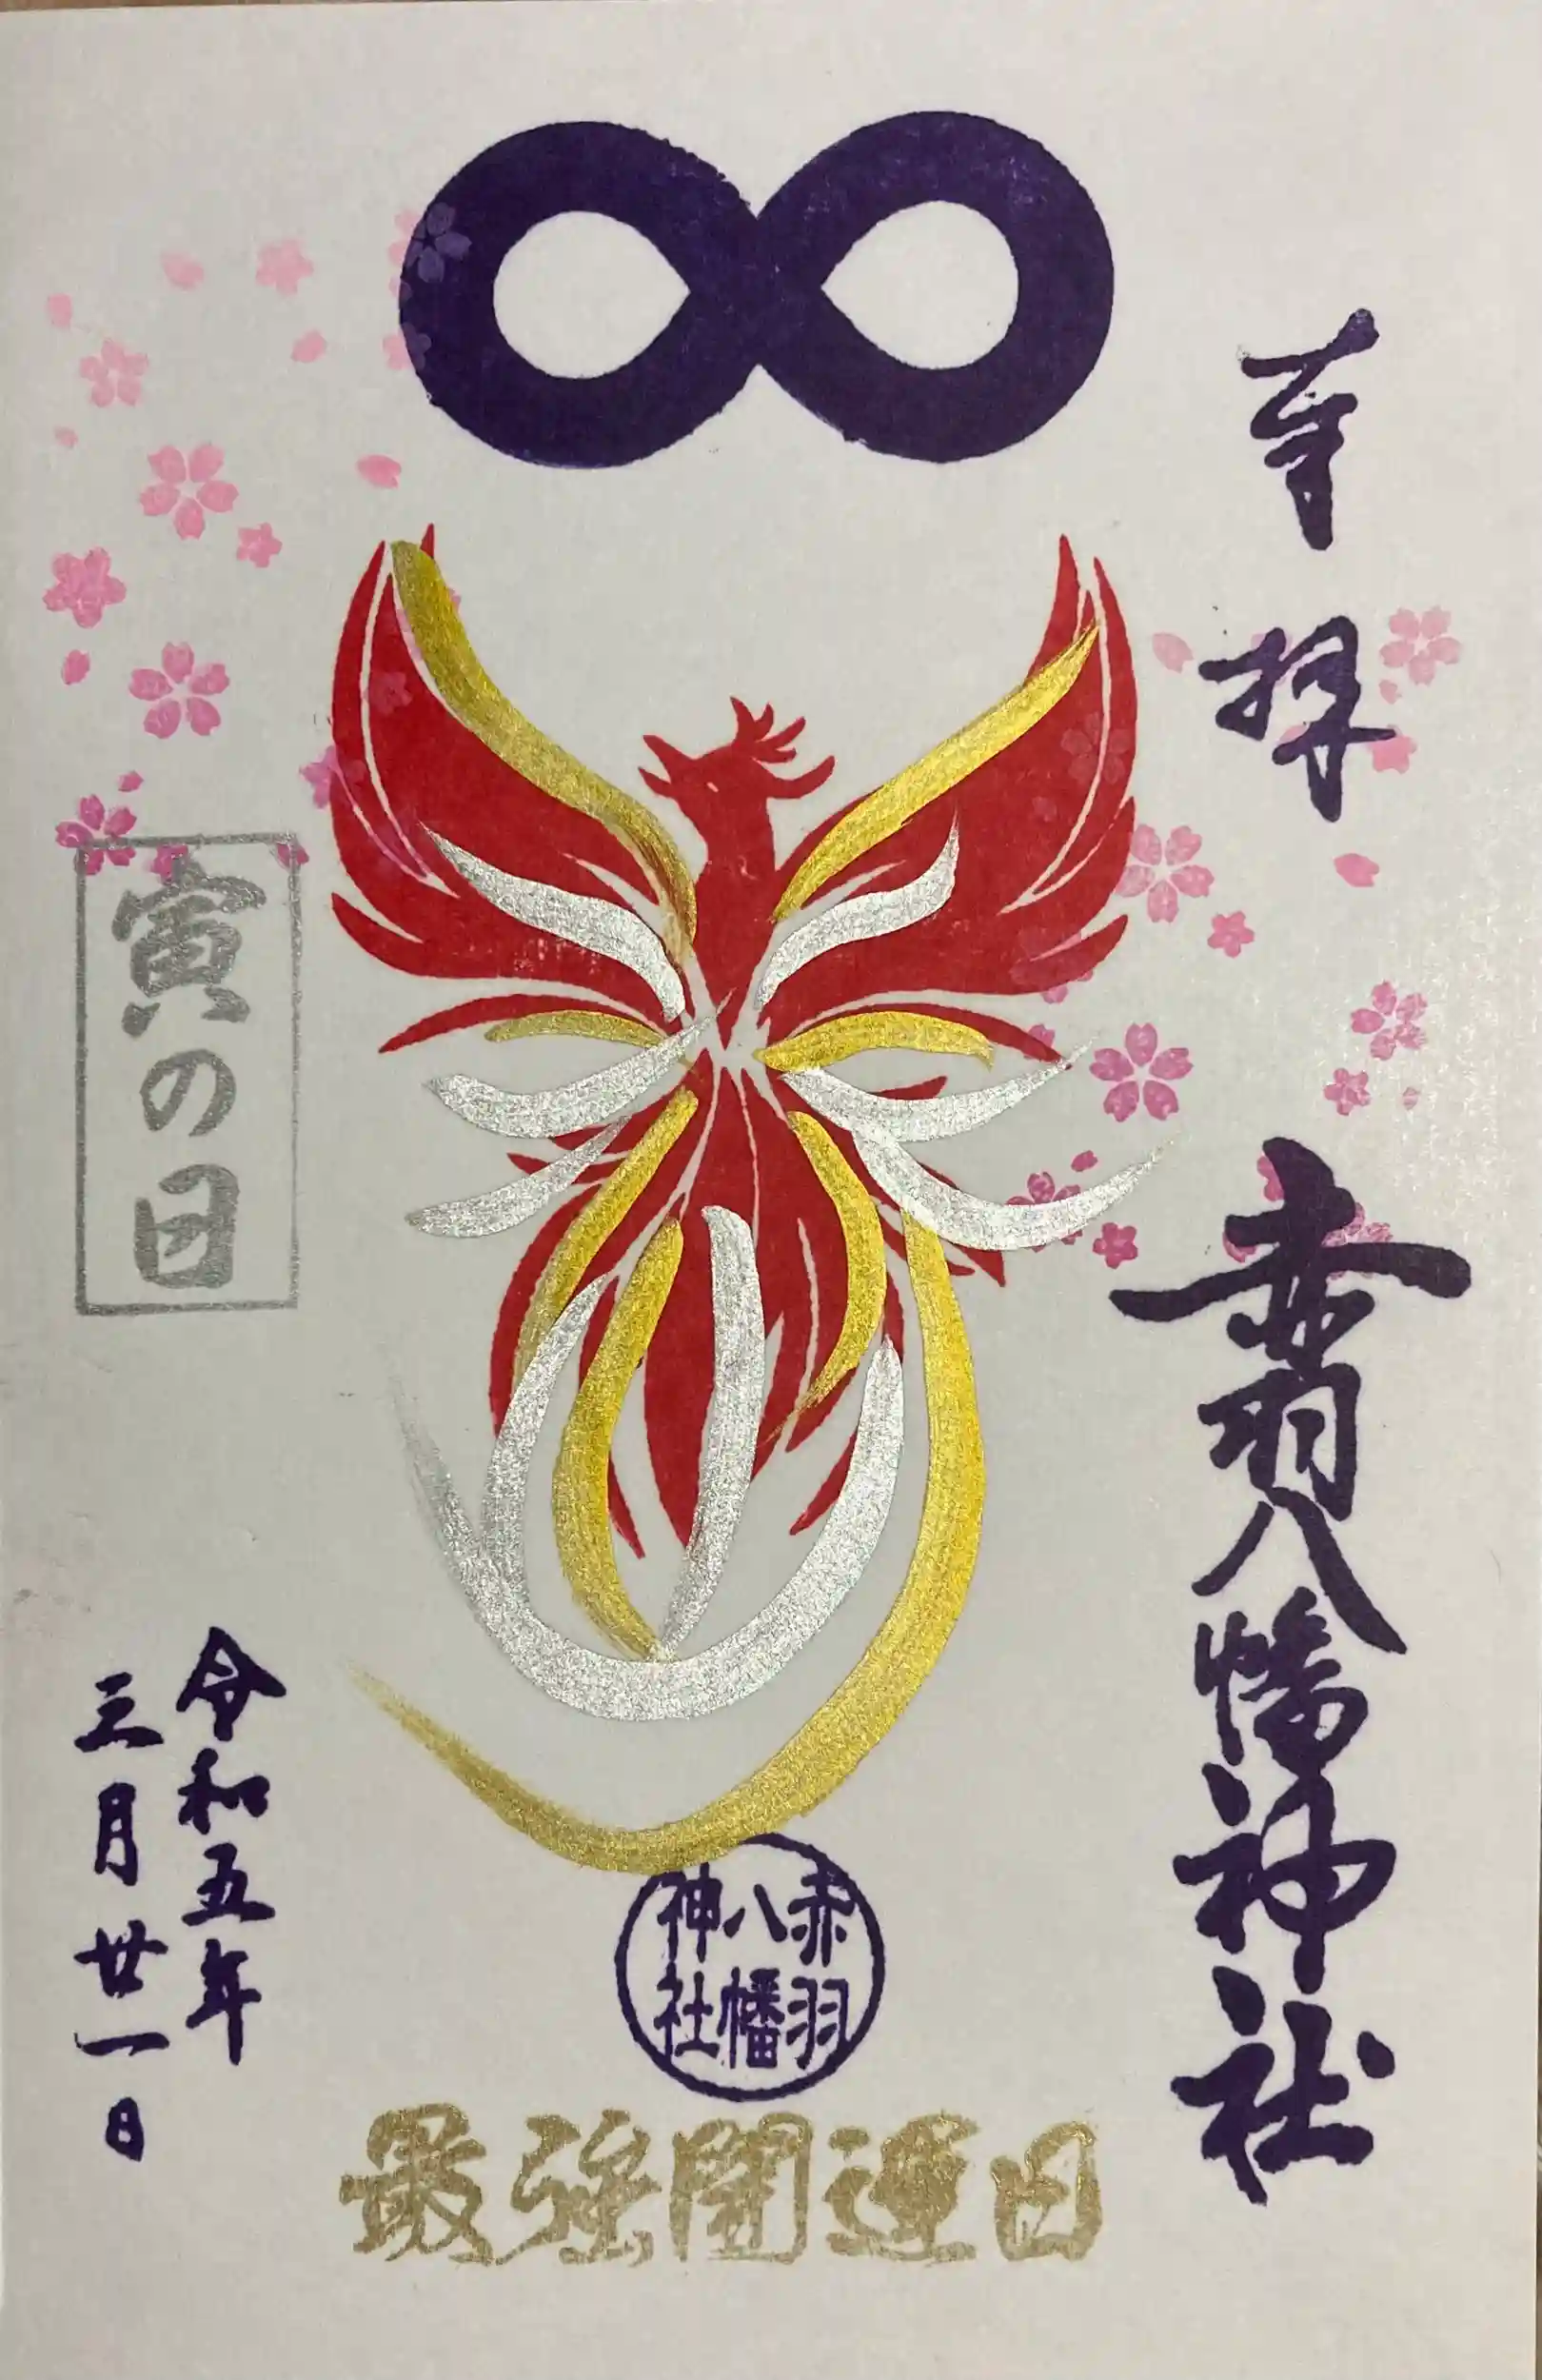 奉拝
赤羽八幡神社
赤羽
八幡
神社
最強開運日
寅の日
令和五年
三月廿一日